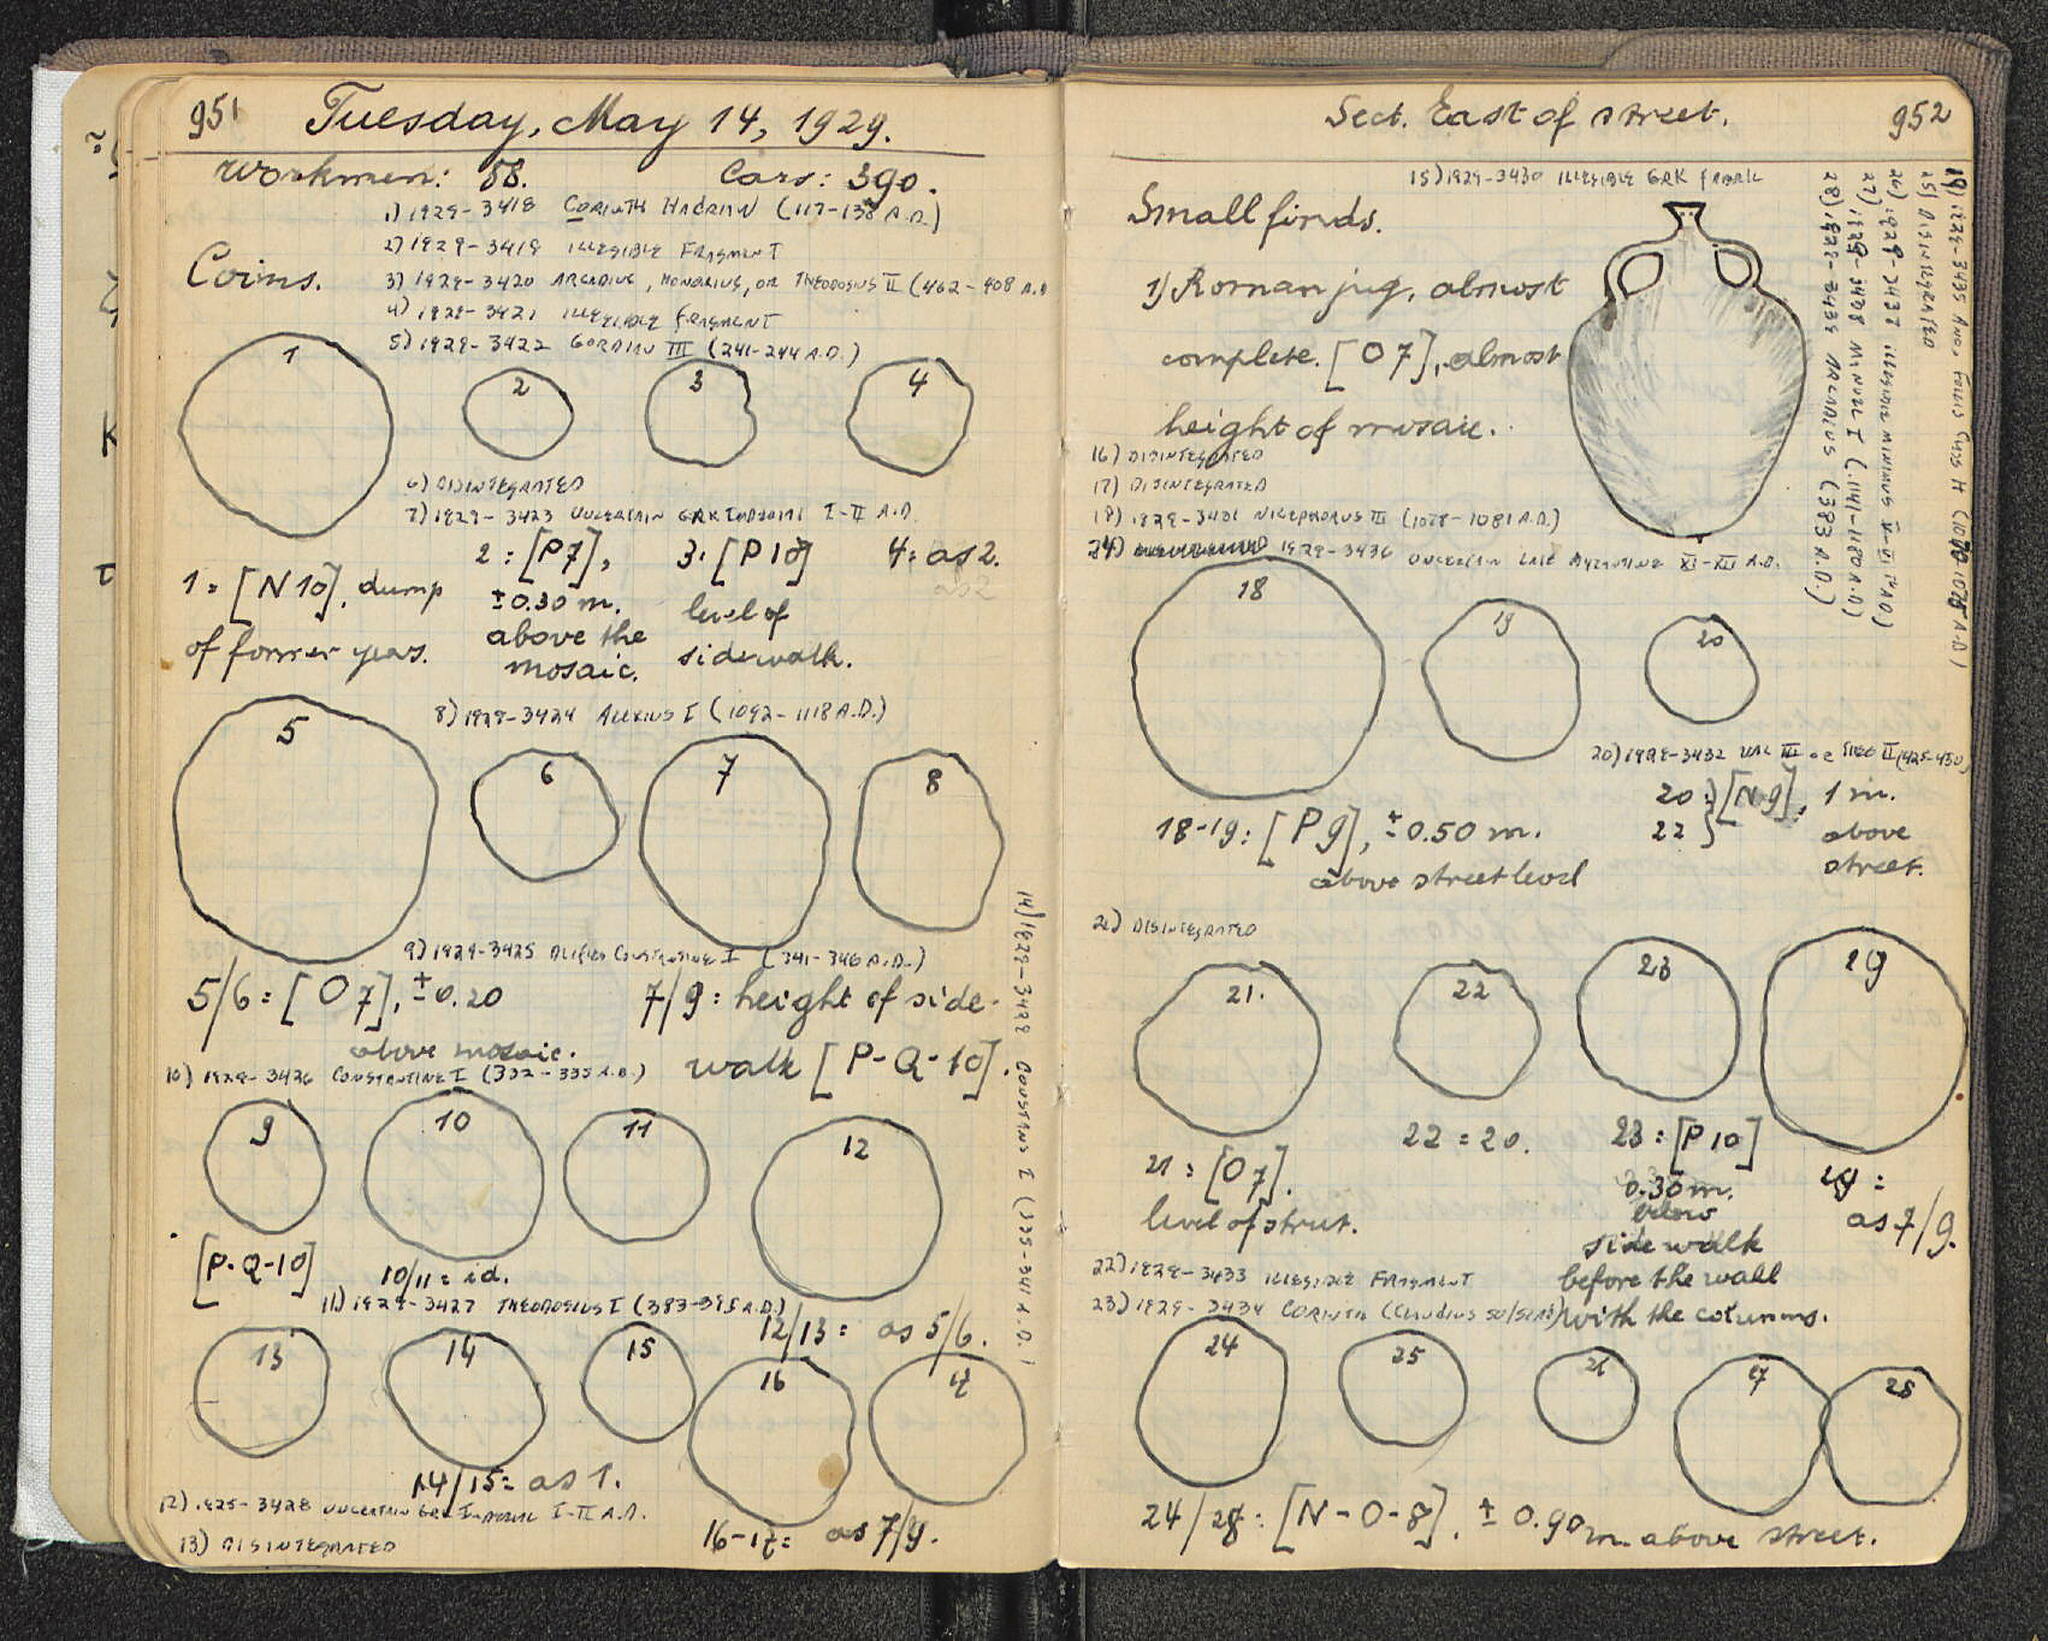 951
Tuesday, May 14, 1929.
Workmen: 58. Cars: 390.
1) 1929-3418 CORINTH HADRIAN (117-138 A.D.)
2) 1929-3419 ILLEGIBLE FRAGMENT
Coins.
3) 1929-3420 ARCADIUS, HONORIUS, OR THEODOSIUS II (402-408 A.D
4) 1929-3421 ILLEGIBLE FRAGMENT
5) 1929-3422 GORDIAN III (241-244 A.D.)
1
2
3
4
6) DISINTEGRATED
7) 1929-3423 UNCERTAIN GRK IMPERIAL I-II A.D.
1 = [N 10]. dump
of former years.
2 : [P7],
±0.30 m.
above the
mosaic.
3: [P 10]
level of
sidewalk.
4: as 2.
as 2
8) 1929-3424 ALEXIUS I (1092-1118 A.D.)
5
6
7
8
9) 1929-3425 CONSTANTINE I (341-346 A.D.)
5/6 = [O 7], ± 0.20
above mosaic.
7/9 : height of side-
walk [P-Q-10].
10) 1929-3426 CONSTANTINE I (332-335 A.D.)
9
10
11
12
[P-Q-10]
10/11 = id.
11) 1929-3427 THEODOSIUS I (383-395 A.D.)
12/13 = as 5/6.
13
14
15
16
17
14/15 = as 1.
12) 1929-3428 UNCERTAIN GRK IMPERIAL I-II A.D.
13) DISINTEGRATED
16-17 = as 7/9.
14) 1929-3429 CONSTANS I (335-341 A.D.)
Sect. East of street.
952
15) 1929-3430 ILLEGIBLE GRK FABRIC
Small finds.
1) Roman jug, almost
complete. [O 7], almost
height of mosaic.
16) DISINTEGRATED
17) DISINTEGRATED
18) 1929-3431 NICEPHORUS III (1078-1081 A.D.)
24) 1929-3436 UNCERTAIN LATE BYZANTINE XI-XIII A.D.
19) 1929-3435 ANO. FOLLIS CLASS H A.D.)
25) DISINTEGRATED
26) 1929-3437 ILLEGIBLE MINIMUS V-VI A.D)
27) 1929-3438 MANUEL I (1141-1180 A.D)
28) 1929-3439 ARCADIUS (383 A.D.)
18
19
20
20) 1929-3432 VAL III or THEO II (425-450)
18-19: [P 9], ± 0.50 m.
above street level
20 } [N 9], 1 m.
22 } above
street.
21) DISINTEGRATED
21.
22
23
29
21 = [O 7].
level of street.
22 = 20.
23 = [P 10]
0.30 m.
below
side walk
before the wall
with the columns.
29 =
as 7/9.
22) 1929-3433 ILLEGIBLE FRAGMENT
23) 1929-3434 CORINTH (CLAUDIUS 50/51 A.D)
24
25
26
27
28
24/28 : [N-O-8]. ± 0.90 m. above street.